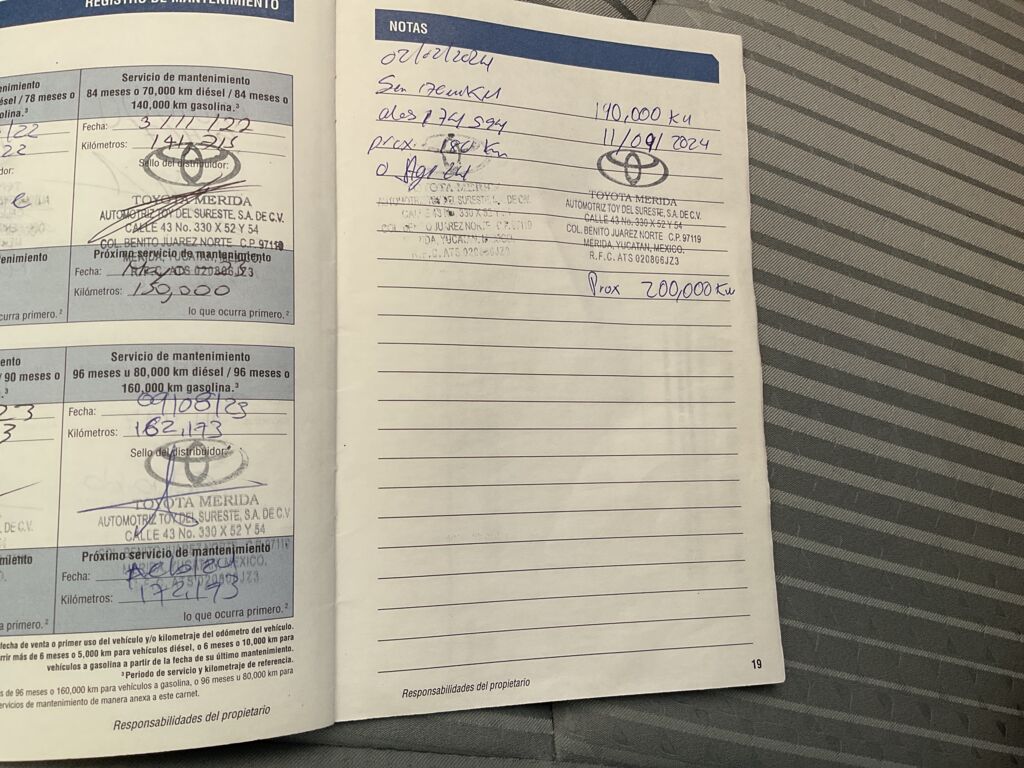 REGISTRO DE MANTENIMIENTO
enimiento
ésel / 78 meses o
olina.³
/22
22
dor:
enimiento
curra primero.²
Servicio de mantenimiento
84 meses o 70,000 km diésel / 84 meses o
140,000 km gasolina.³
Fecha: 3/11/22
Kilómetros:
Sello del distribuidor:
TOYOTA MERIDA
AUTOMOTRIZ TOY DEL SURESTE, S.A. DE C.V.
CALLE 43 No. 330 X 52 Y 54
COL. BENITO JUAREZ NORTE C.P. 97119
MERIDA, YUCATAN, MEXICO.
R.F.C. ATS 020806JZ3
Próximo servicio de mantenimiento
Fecha:
Kilómetros: 150,000
lo que ocurra primero.²
ento
/ 90 meses o
.³
23
3
DE C.V.
miento
a primero.²
Servicio de mantenimiento
96 meses u 80,000 km diésel / 96 meses o
160,000 km gasolina.³
Fecha: 09/08/23
Kilómetros: 162,173
Sello del distribuidor:
TOYOTA MERIDA
AUTOMOTRIZ TOY DEL SURESTE, S.A. DE C.V.
CALLE 43 No. 330 X 52 Y 54
Próximo servicio de mantenimiento
Fecha:
Kilómetros: 172,173
lo que ocurra primero.²
fecha de venta o primer uso del vehículo y/o kilometraje del odómetro del vehículo.
rrir más de 6 meses o 5,000 km para vehículos diésel, o 6 meses o 10,000 km para
vehículos a gasolina a partir de la fecha de su último mantenimiento.
³Periodo de servicio y kilometraje de referencia.
s de 96 meses o 160,000 km para vehículos a gasolina, o 96 meses u 80,000 km para
servicios de mantenimiento de manera anexa a este carnet.
Responsabilidades del propietario
NOTAS
02/02/2024
alos 174594
prox. 180 Km
TOYOTA MERIDA
190,000 KM
11/09/2024
TOYOTA MERIDA
AUTOMOTRIZ TOY DEL SURESTE, S.A. DE C.V.
CALLE 43 No. 330 X 52 Y 54
COL. BENITO JUAREZ NORTE C.P. 97119
MERIDA, YUCATAN, MEXICO.
R.F.C. ATS 020806JZ3
Prox 200,000 Km
19
Responsabilidades del propietario